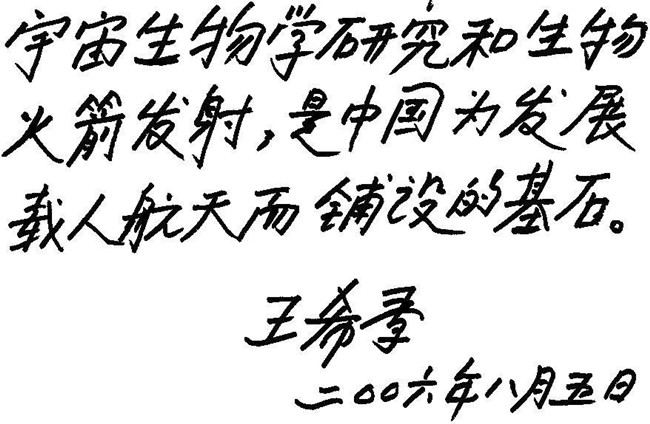 宇宙生物学研究和生物
火箭发射，是中国为发展
载人航天而铺设的基石。
王希季
二〇〇六年八月五日